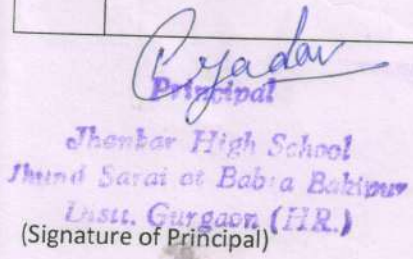 P Yadav
Principal
Jhankar High School
Jhund Sarai at Babra Bakipur
Distt. Gurgaon (HR.)
(Signature of Principal)